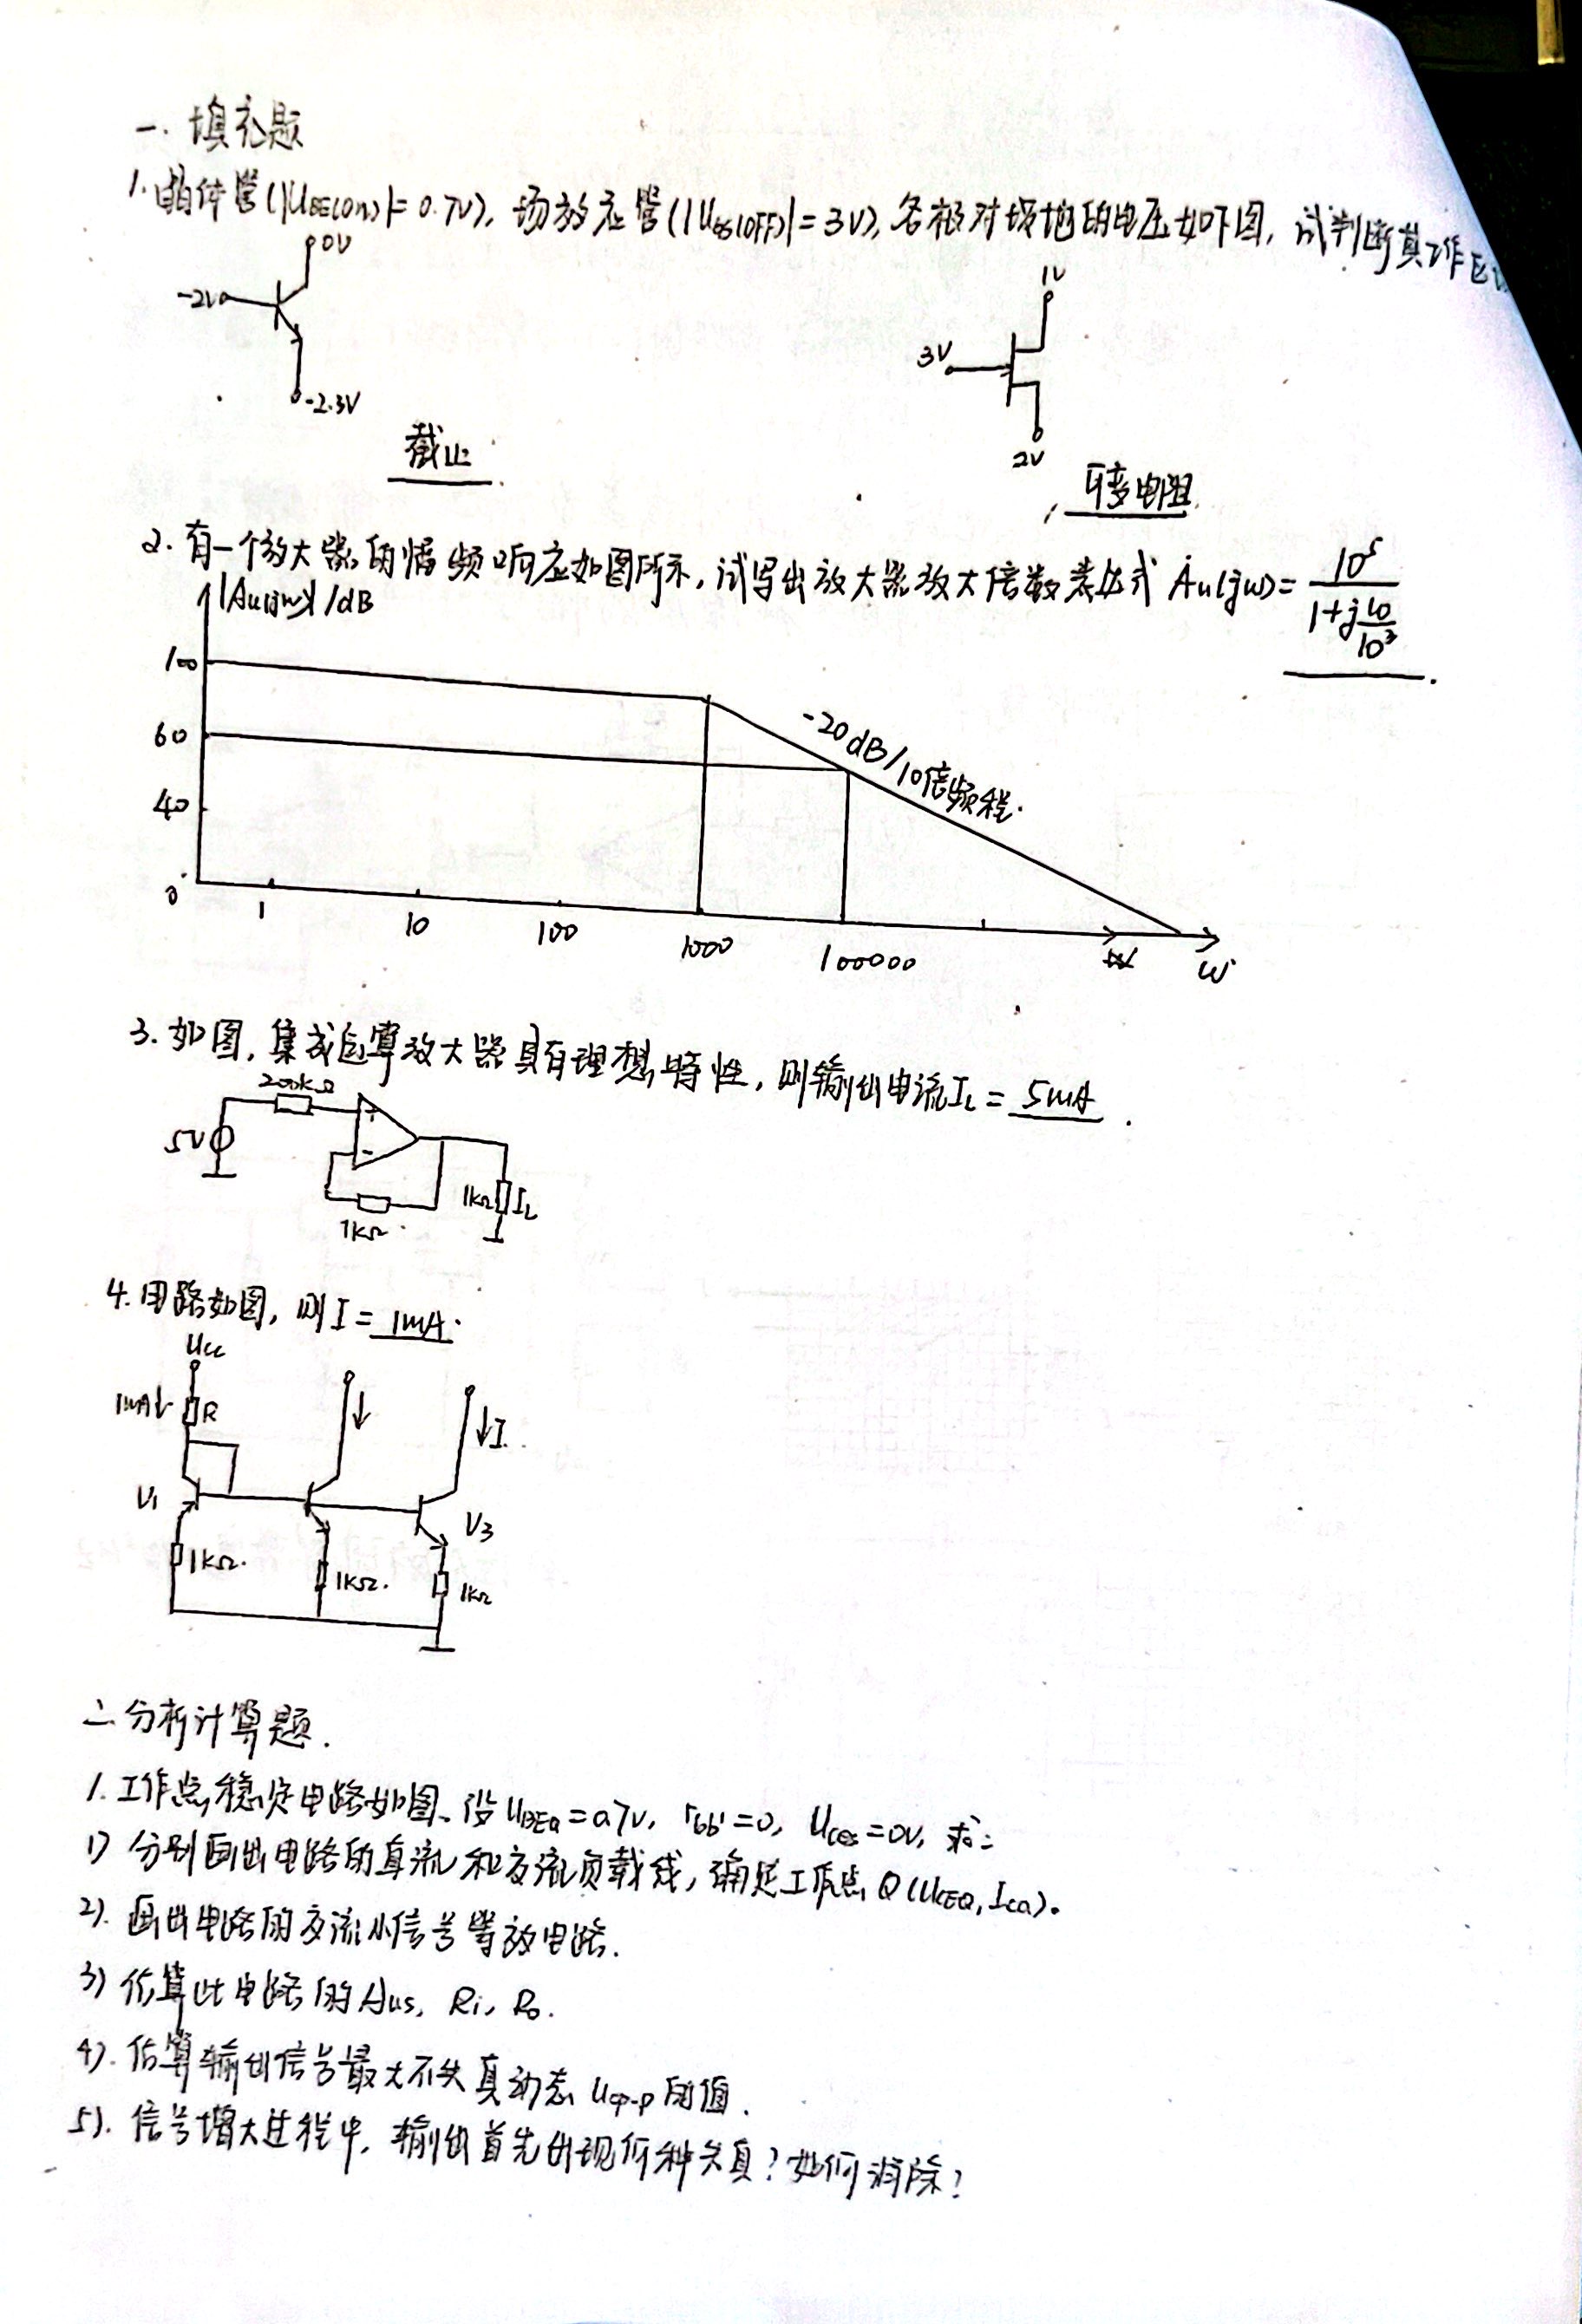 一. 填充题
1. 晶体管(|UBE(on)|=0.7V), 场效应管(|UGS(OFF)|=3V), 各极对场地的电压如下图, 试判断其工作区
0V
-2V
-2.3V
截止.
1V
3V
2V
可变电阻.
2. 有一个放大器的幅频响应如图所示, 试写出放大器放大倍数表达式 Au(jω)= 10⁵ / (1+j ω/10³).
|Au(jω)|/dB
100
60
40
0
-20dB/10倍频程.
1
10
100
1000
100000
ω
3. 如图, 集成运算放大器具有理想特性, 则输出电流IL = 5mA.
200kΩ
5V
+
-
1kΩ
IL
1kΩ
4. 电路如图, 则 I = 1mA.
Ucc
1mA↓
R
↓
↓I.
V1
V3
1kΩ.
1kΩ.
1kΩ
二 分析计算题.
1. 工作点稳定电路如图、设UBEQ=0.7V, rbb'=0, Uces=0V, 求:
1) 分别画出电路的直流和交流负载线, 确定工作点 Q(UCEQ, ICQ).
2). 画出电路的交流小信号等效电路.
3) 估算此电路的Aus, Ri, Ro.
4). 估算输出信号最大不失真动态 Uop-p 的值.
5). 信号增大过程中, 输出首先出现何种失真? 如何消除?